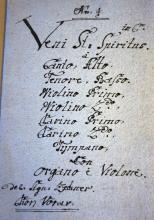 No. 4
in C.
Veni St. Spiritus.
à
Canto, Alto,
Tenore, Basso.
Violino Primo.
Violino 2do.
Clarino Primo.
Clarino 2do.
Tympano.
Con
Organo è Violone.
del Sign.
Von